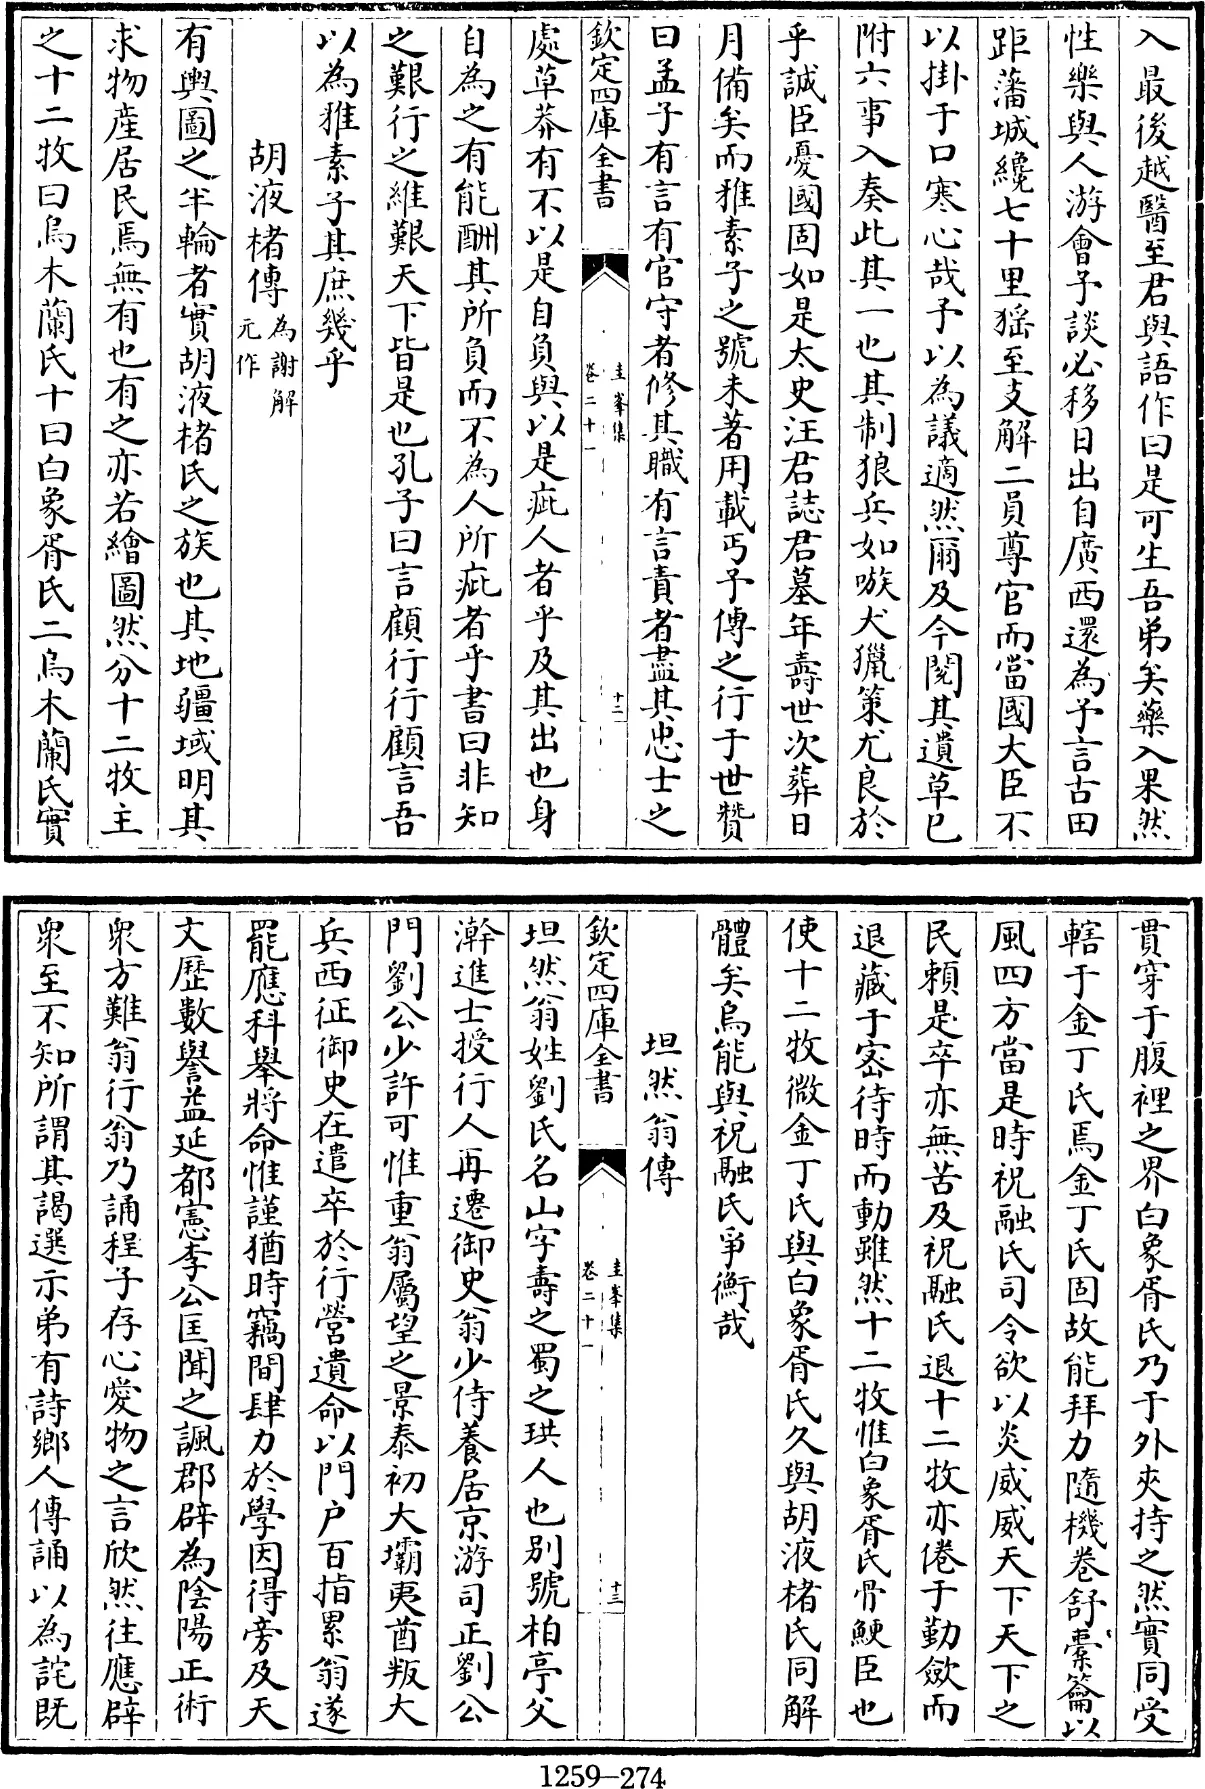 入最後越醫至君與語作曰是可生吾弟矣藥入果然
性樂與人游會予談必移日出自廣西還為予言古田
距藩城纔七十里猺至支解二員尊官而當國大臣不
以掛于口寒心哉予以為議適然爾及今閱其遺草已
附六事入奏此其一也其制狼兵如嗾犬獵策尤良於
乎誠臣憂國固如是太史汪君誌君墓年壽世次葬日
月備矣而雅素子之號未著用載丐予傳之行于世贊
曰孟子有言有官守者修其職有言責者盡其忠士之
欽定四庫全書
圭峯集
卷二十一
十二
處草莽有不以是自負與以是疵人者乎及其出也身
自為之有能酬其所負而不為人所疵者乎書曰非知
之艱行之維艱天下皆是也孔子曰言顧行行顧言吾
以為雅素子其庶幾乎
胡液楮傳為謝解
元作
有輿圖之半輪者實胡液楮氏之族也其地疆域明其
求物産居民焉無有也有之亦若繪圖然分十二牧主
之十二牧曰烏木蘭氏十曰白象胥氏二烏木蘭氏實
貫穿于腹裡之界白象胥氏乃于外夾持之然實同受
轄于金丁氏焉金丁氏固故能拜力隨機卷舒橐籥以
風四方當是時祝融氏司令欲以炎威威天下天下之
民賴是卒亦無苦及祝融氏退十二牧亦倦于勤斂而
退藏于密待時而動雖然十二牧惟白象胥氏骨鯁臣也
使十二牧微金丁氏與白象胥氏久與胡液楮氏同解
體矣烏能與祝融氏爭衡哉
坦然翁傳
欽定四庫全書
圭峯集
卷二十一
十三
坦然翁姓劉氏名山字壽之蜀之珙人也别號柏亭父
瀚進士授行人再遷御史翁少侍養居京游司正劉公
門劉公少許可惟重翁屬望之景泰初大壩夷酋叛大
兵西征御史在遣卒於行營遺命以門户百指累翁遂
罷應科舉將命惟謹猶時竊間肆力於學因得旁及天
文歷數譽益延都憲李公匡聞之諷郡辟為陰陽正術
衆方難翁行翁乃誦程子存心愛物之言欣然往應辟
衆至不知所謂其謁選示弟有詩鄉人傳誦以為詫既
1259—274